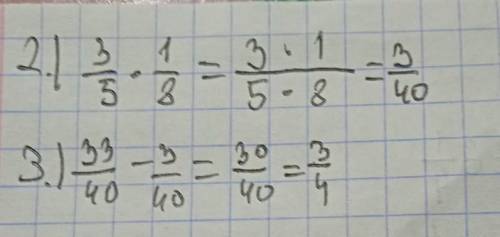 2.) 3/5 · 1/8 = 3 · 1 / 5 · 8 = 3/40
3.) 33/40 - 3/40 = 30/40 = 3/4